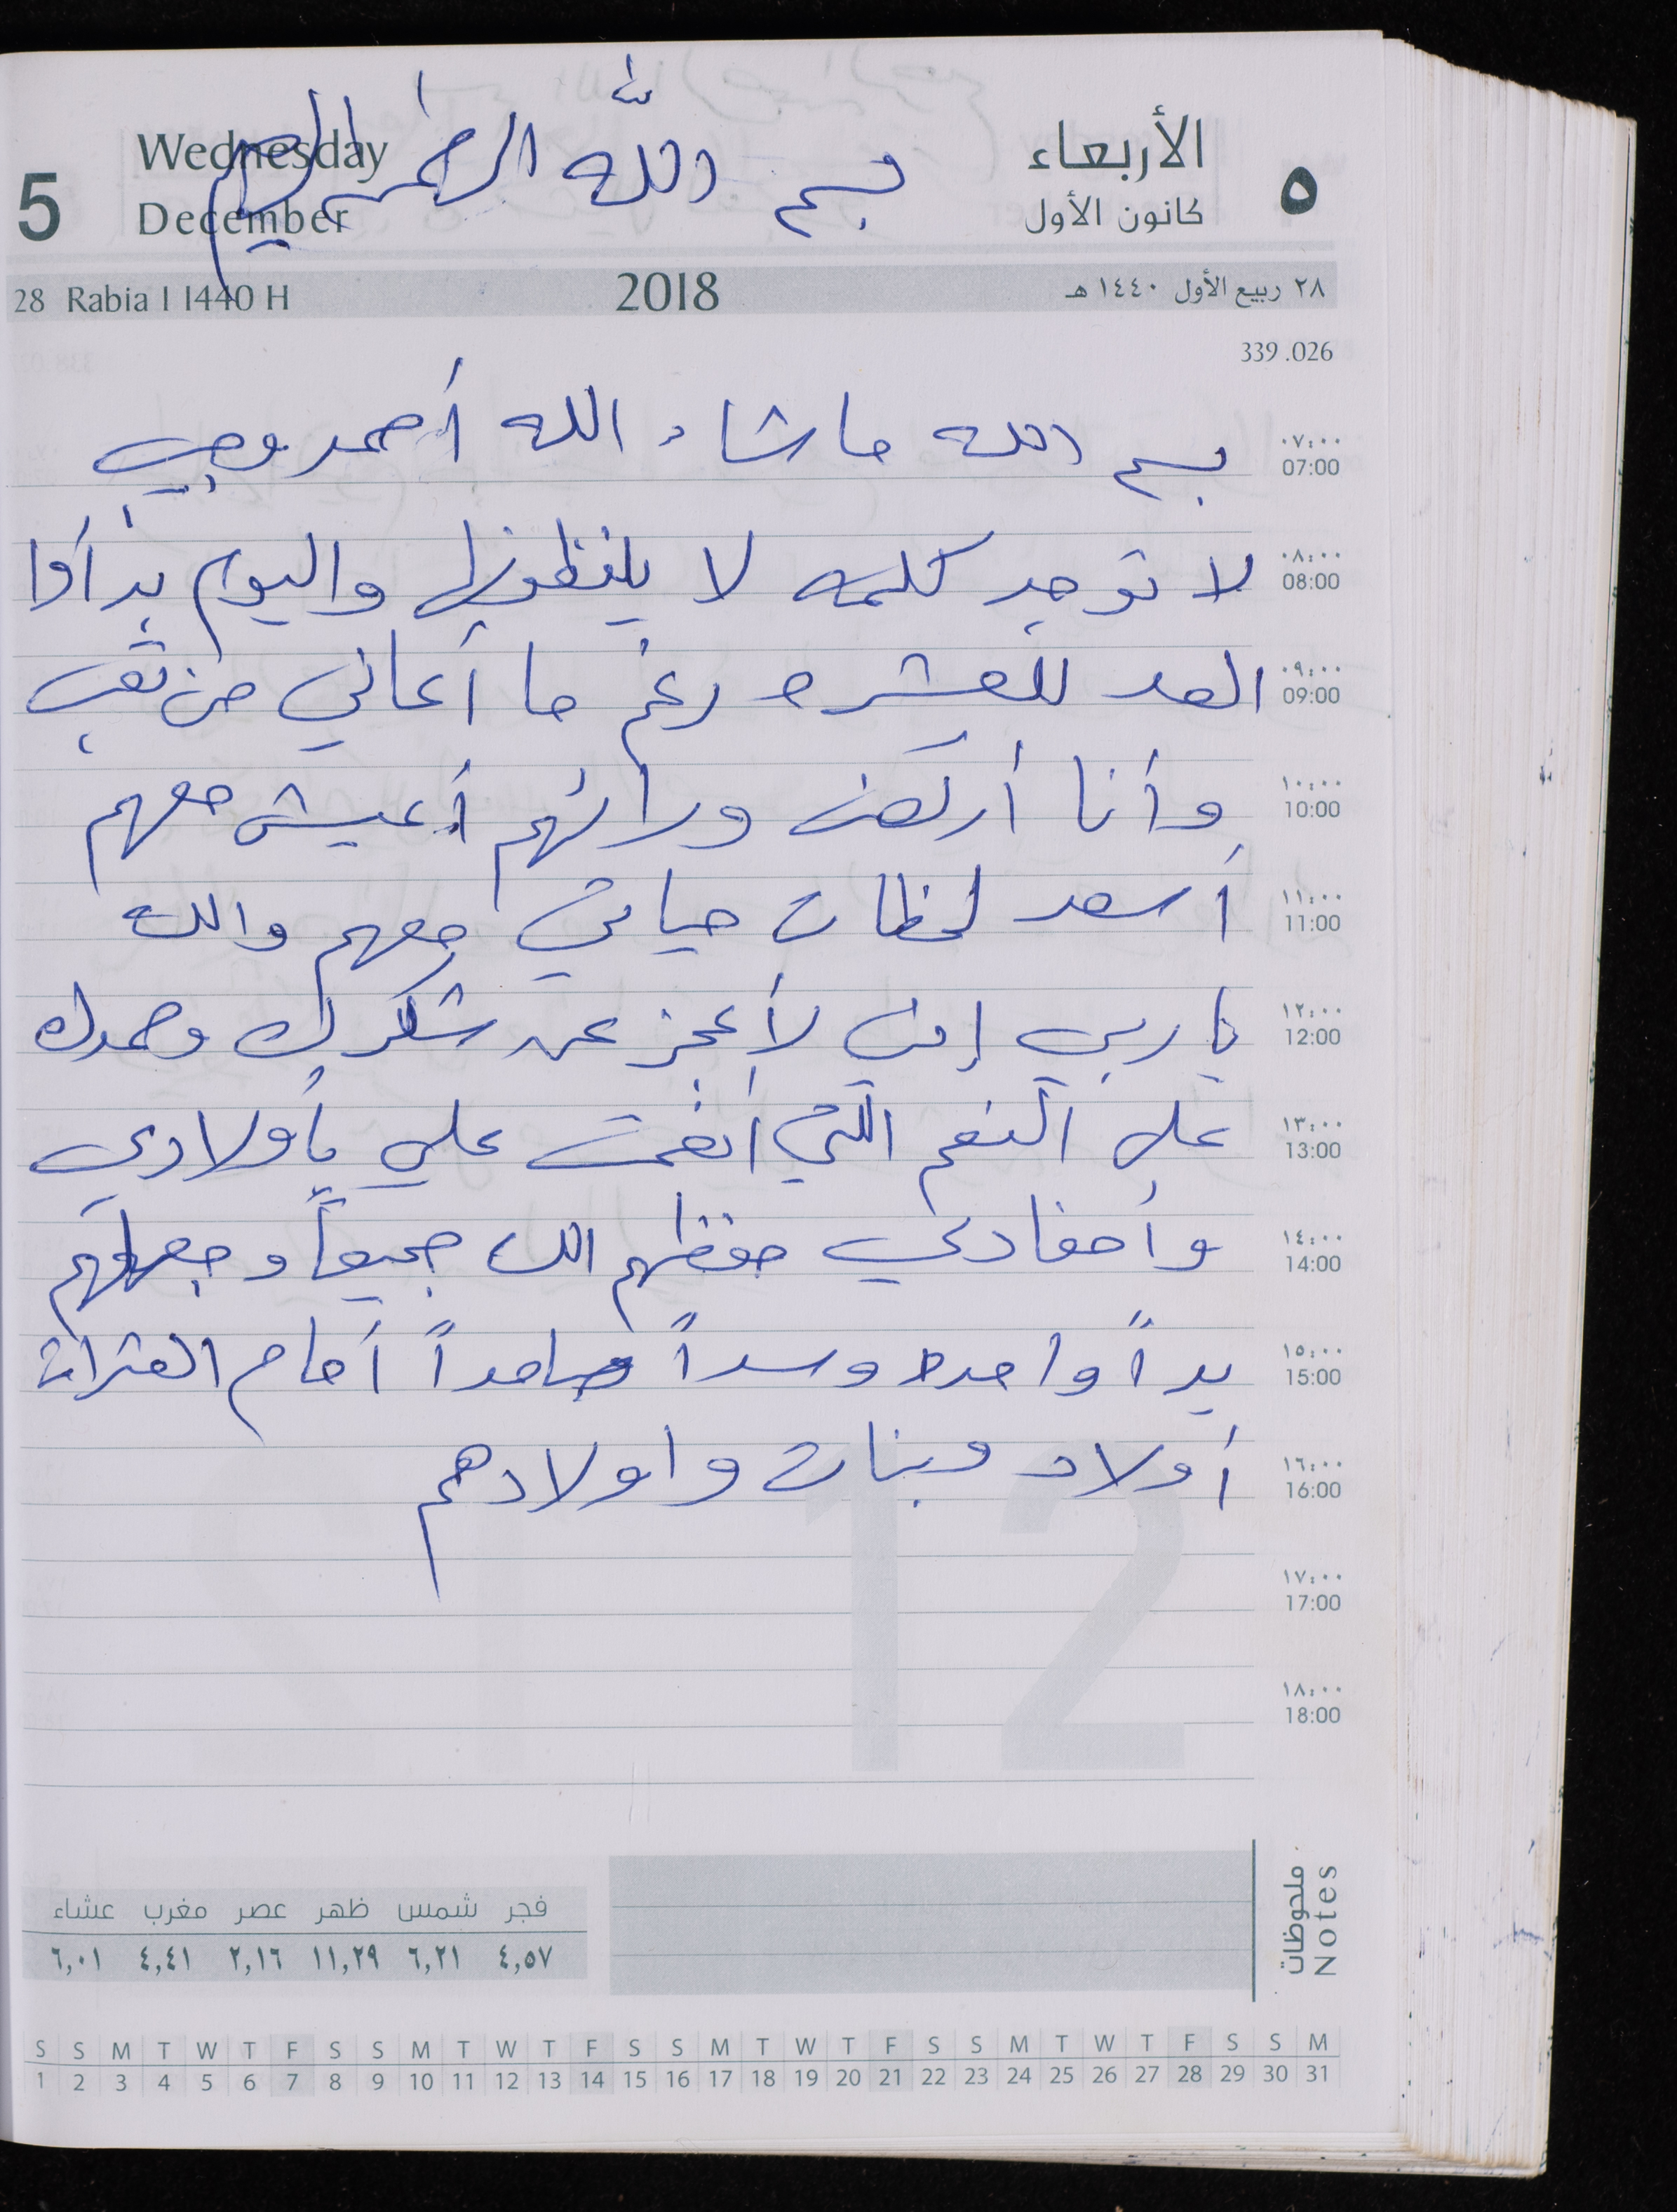 بسم الله الرحمن الرحيم
5 Wednesday الأربعاء ٥
December كانون الأول
28 Rabia I 1440 H 2018 ٢٨ ربيع الأول ١٤٤٠ هـ
339 .026
٠٧:٠٠
07:00 بسم الله ما شاء الله أحمد وحبيب
٠٨:٠٠
08:00 لا توجد كلمه لا يلفظونها واليوم بدأوا
٠٩:٠٠
09:00 العد للعشره رغم ما أعاني من تعب
١٠:٠٠
10:00 وأنا أركض ورائهم أعيش معهم
١١:٠٠
11:00 أسعد لحظات حياتي معهم والله
١٢:٠٠
12:00 يا ربي إني لأعجز عن شكرك وحمدك
١٣:٠٠
13:00 على النعم التي أنعمت علي بأولادي
١٤:٠٠
14:00 وأحفادي حفظهم الله جميعاً وجعلهم
١٥:٠٠
15:00 يداً واحده وسداً صامداً أمام العثرات
١٦:٠٠
16:00 أولاد وبنات واولادهم
١٧:٠٠
17:00
١٨:٠٠
18:00
12
ملحوظات
Notes
فجر شمس ظهر عصر مغرب عشاء
٤,٥٧ ٦,٢١ ١١,٢٩ ٢,١٦ ٤,٤١ ٦,٠١
S S M T W T F S S M T W T F S S M T W T F S S M T W T F S S M
1 2 3 4 5 6 7 8 9 10 11 12 13 14 15 16 17 18 19 20 21 22 23 24 25 26 27 28 29 30 31